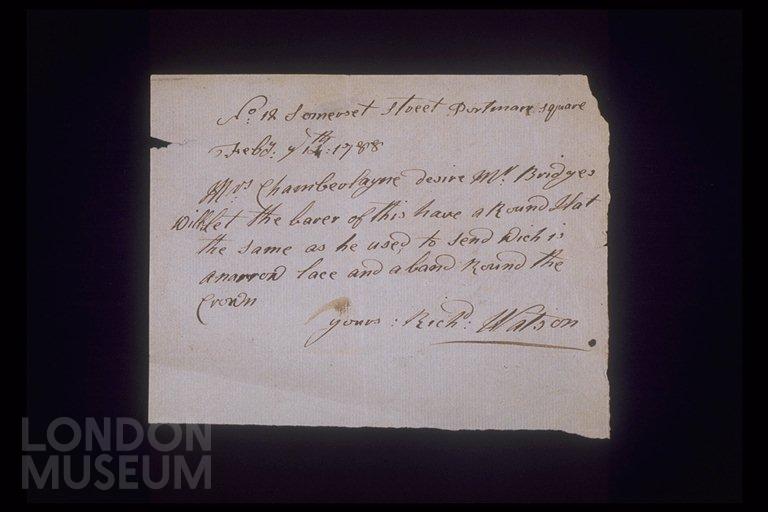 No: 18 Somerset Street Portman Square
Feby. ye 14th: 1788
Mrs Chamberlayne desire Mr. Bridges
Will let the barer of this have a Round Hat
the same as he used to send Wich is
a narrow lace and a band Round the
Crown
yours: Richd: Watson
LONDON
MUSEUM